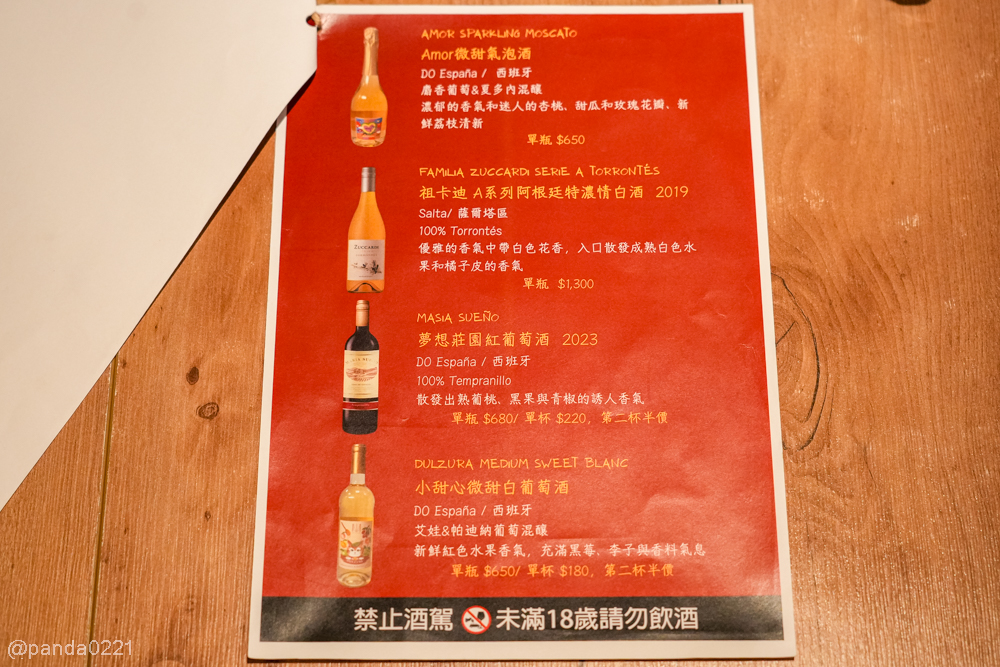 AMOR SPARKLING MOSCATO
Amor微甜氣泡酒
DO España / 西班牙
麝香葡萄&夏多內混釀
濃郁的香氣和迷人的杏桃、甜瓜和玫瑰花瓣、新
鮮荔枝清新
單瓶 $650
FAMILIA ZUCCARDI SERIE A TORRONTÉS
祖卡迪 A系列阿根廷特濃情白酒 2019
Salta/ 薩爾塔區
100% Torrontés
優雅的香氣中帶白色花香，入口散發成熟白色水
果和橘子皮的香氣
單瓶 $1,300
ZUCCARDI
MASIA SUEÑO
夢想莊園紅葡萄酒 2023
DO España / 西班牙
100% Tempranillo
散發出熟葡桃、黑果與青椒的誘人香氣
單瓶 $680/ 單杯 $220，第二杯半價
DULZURA MEDIUM SWEET BLANC
小甜心微甜白葡萄酒
DO España / 西班牙
艾娃&帕迪納葡萄混釀
新鮮紅色水果香氣，充滿黑莓、李子與香料氣息
單瓶 $650/ 單杯 $180，第二杯半價
禁止酒駕 未滿18歲請勿飲酒
@panda0221